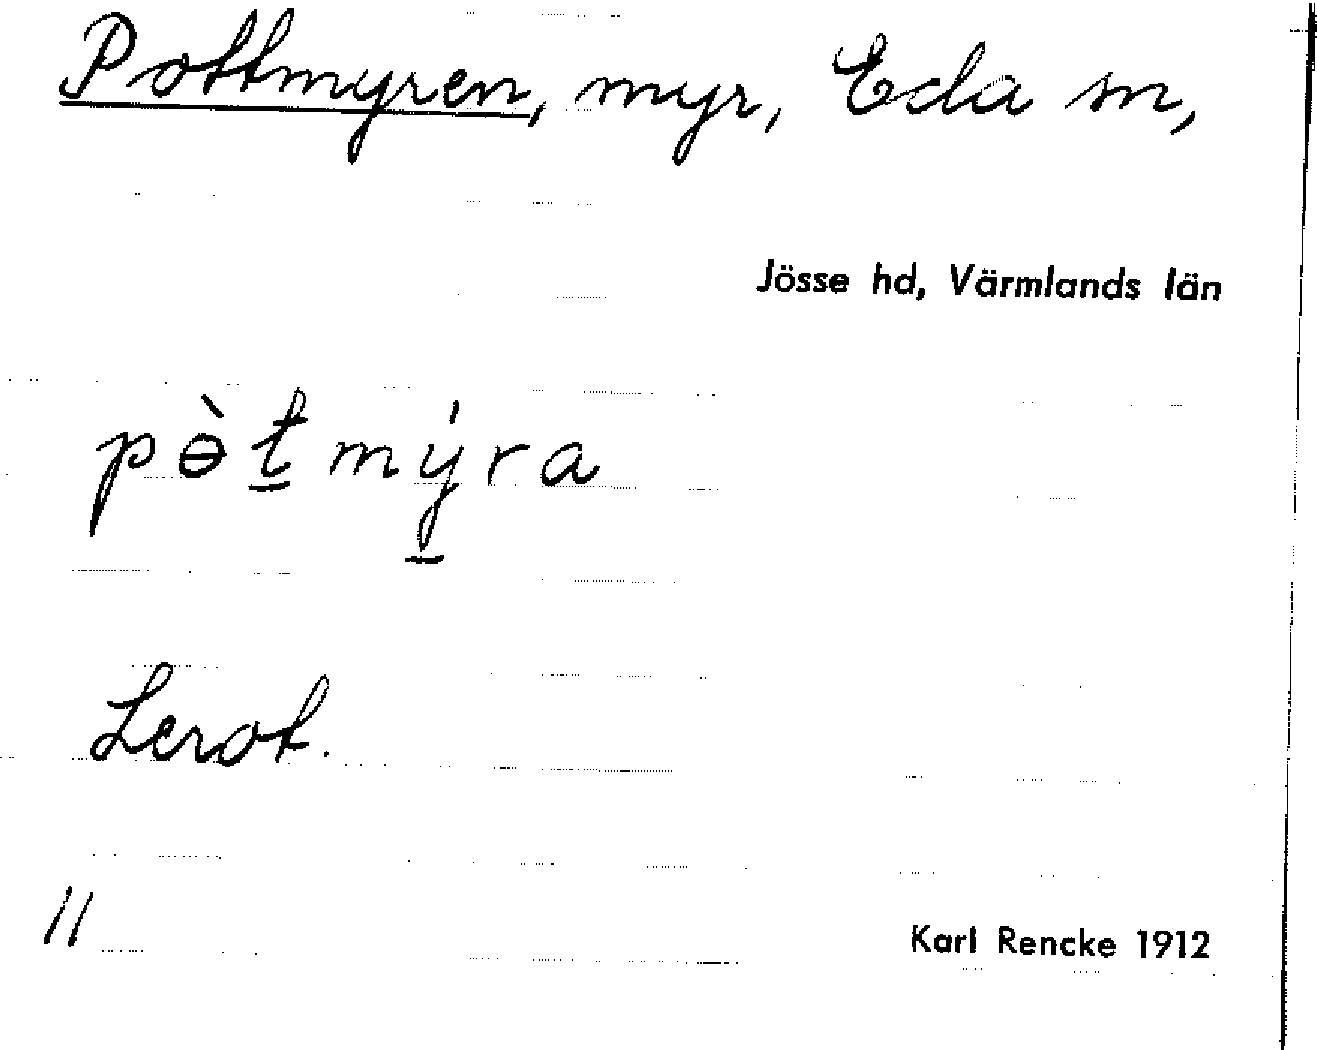 Pottmyren, myr, Eda sn,
Jösse hd, Värmlands län
pɵ̀t̠mý̠ra
Lerot.
11
Karl Rencke 1912